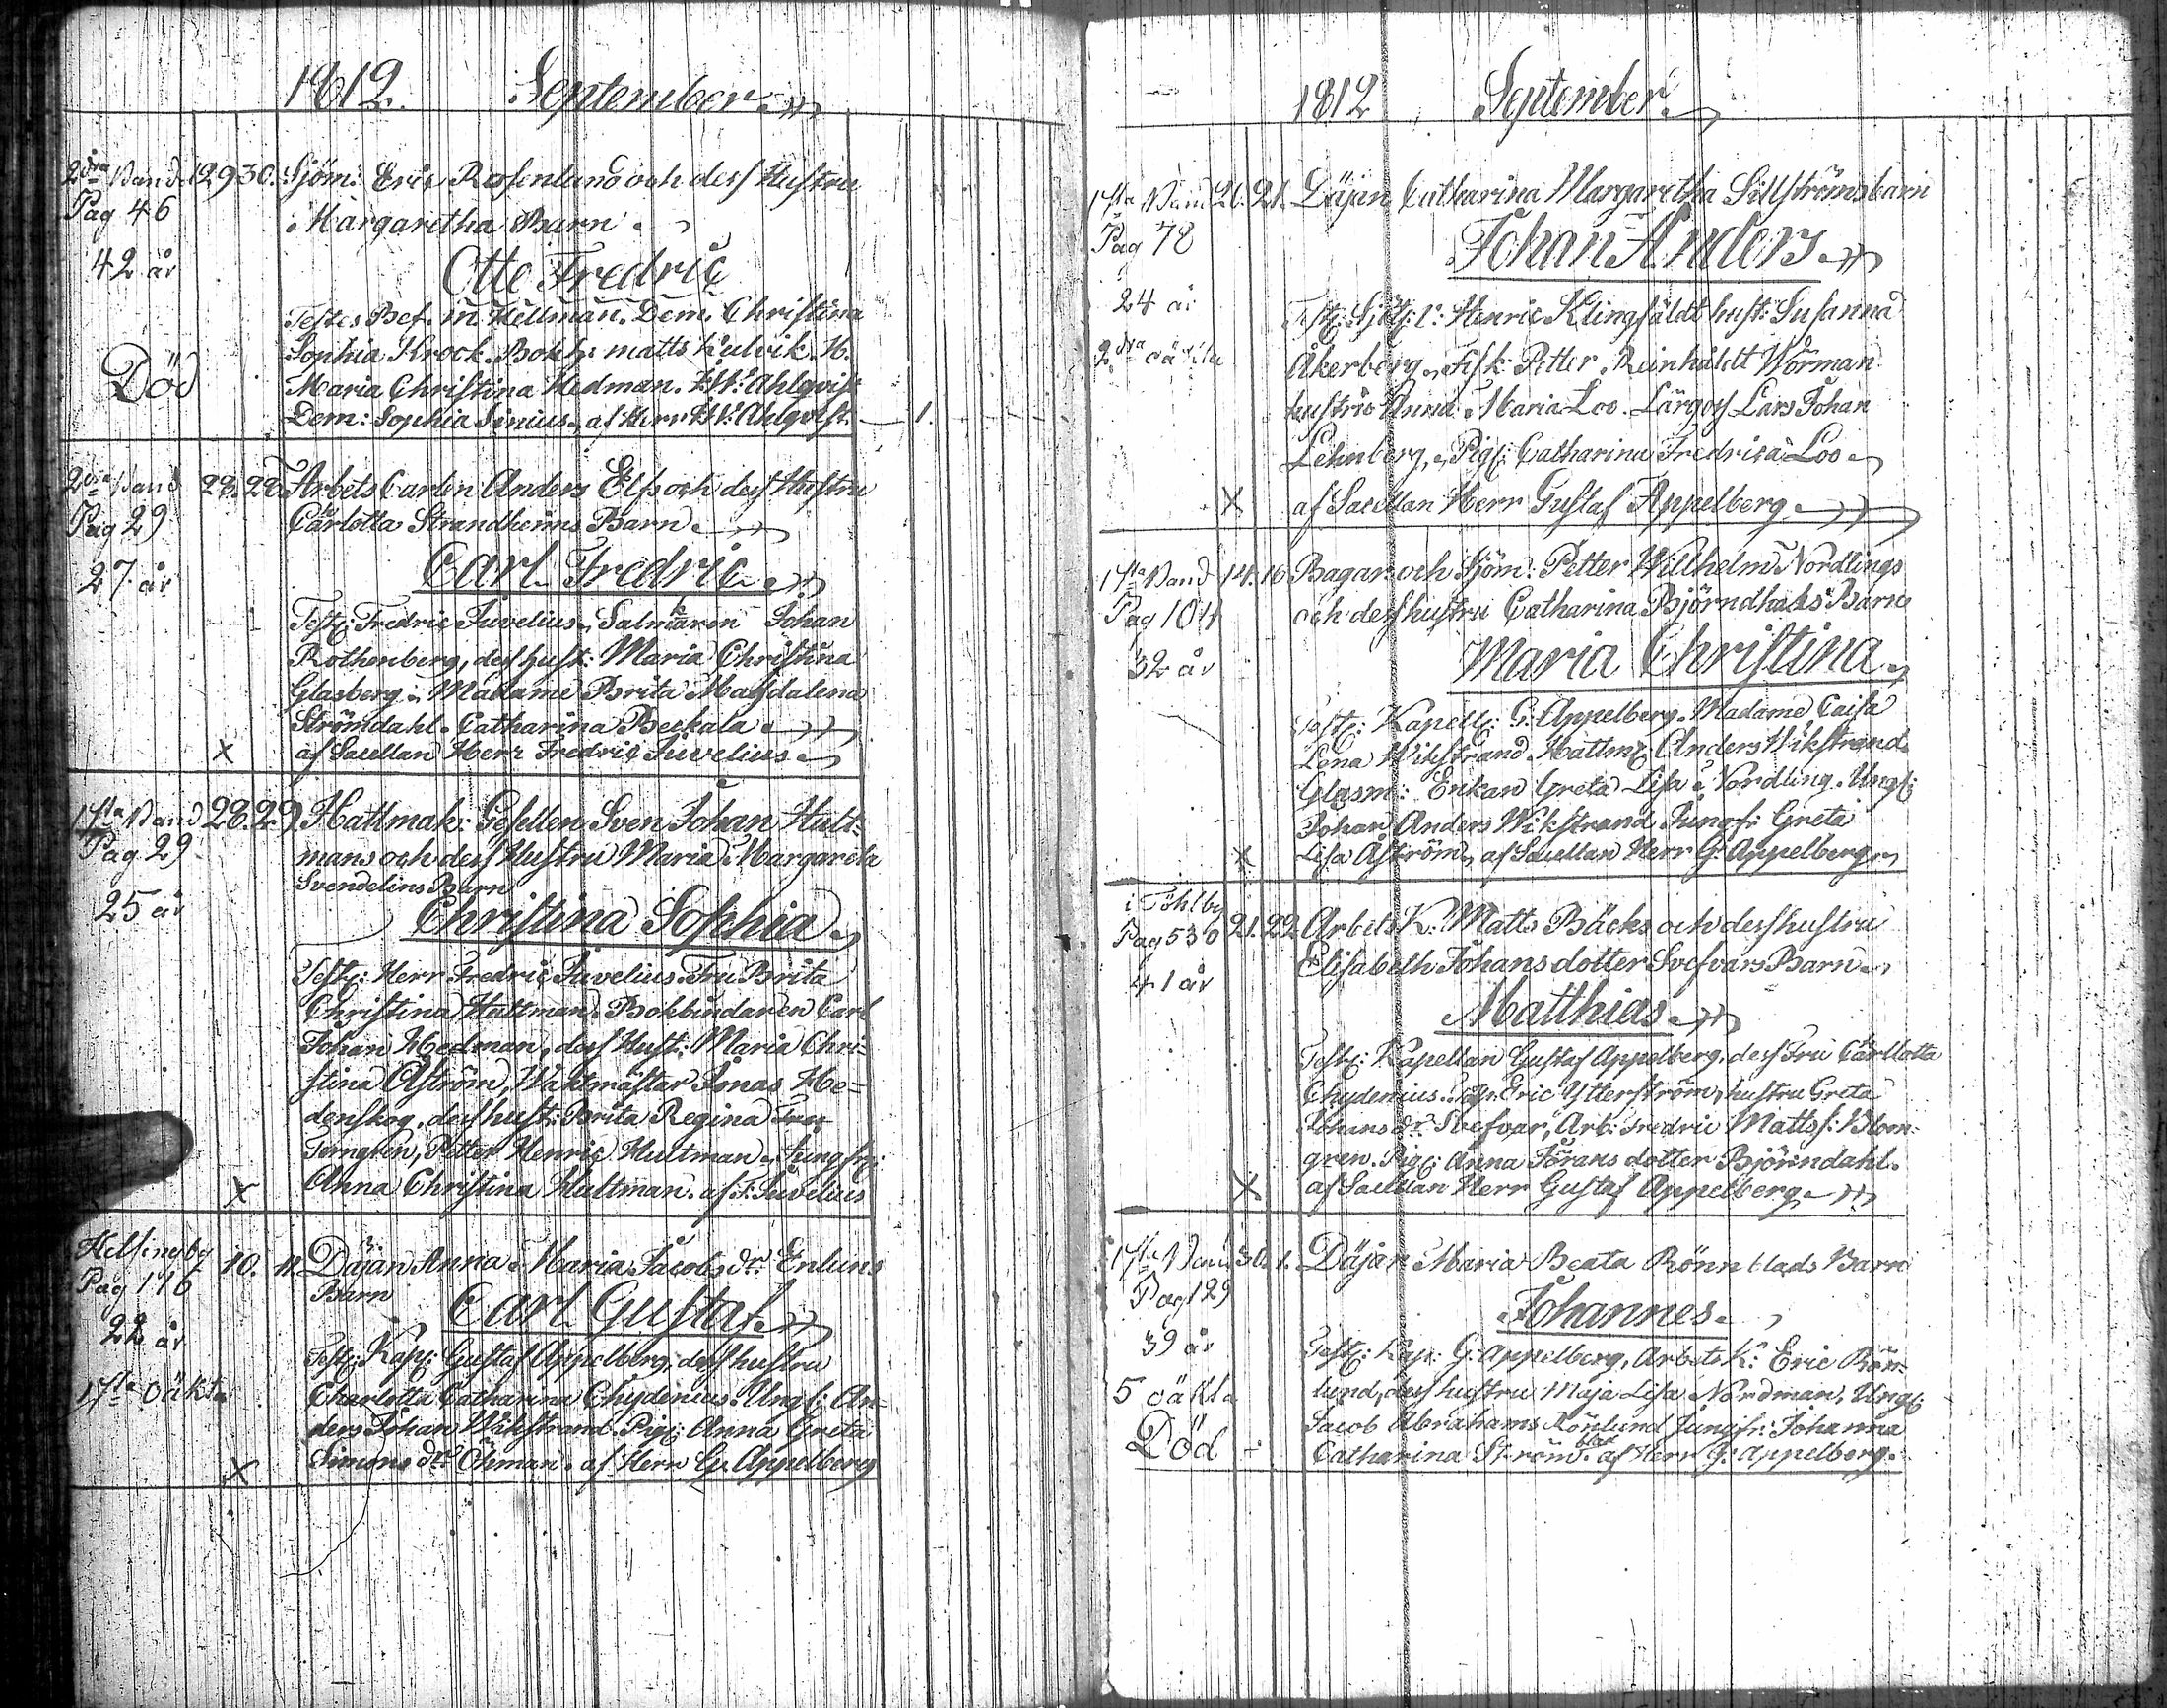 1812. September
2dra Band 29 30. Sjöm: Eric Rosenlund och dess Hustru
Pag 46 Margaretha Barn
42 år Otto Fredric
Testes Bef. Hellman. Dem. Christina
Sophia Krock. Bokh: matts Kulvik. H.
Död Maria Christina Hedman. Ahlqvist
Dem: Sophia Sinius, af Herr Ahlqvist. 1.
2dra Band 28. 28. Arbets Carlen Anders Elfs och dess Hustru
Pag 29 Carlotta Strandheims Barn
27 år Carl Fredric
Test: Fredric Juvelius, Johan
Rothenberg, dess hust: Maria Christina
Glasberg. Madame Brita Magdalena
Strömdahl. Catharina Beckala
X af Sacellan Herr Fredric Juvelius
1sta Band 28. 29. Hattmak: Gesellen Sven Johan Hult-
Pag. 29 mans och dess Hustru Maria Margareta
Svendelins Barn
25 år Christina Sophia
Test: Herr Fredric Juvelius. Fru Brita
Christina Hultman. Bokbindaren Carl
Johan Hedman, dess Hust: Maria Chri-
stina Åström, Waktmästar Jonas He=
denskog, dess hust: Brita Regina
Terngren, Petter Henric Hultman. Jungfru:
X Anna Christina Hultman. af F: Juvelius
Helsingby 10. 11. Däjan Anna Maria Jacobs dr. Enlunds
Pag 176 Barn Carl Gustaf
22 år Test: Kap: Gustaf Appelberg, dess hustru
1sta oäkta Charlotta Catharina Chydenius. Ungf: An-
ders Johan Wikstrand. Pig: Anna Greta
X Simons dtr Öhman. af Herr G. Appelberg
1812 September
1sta Band 20. 21. Däjan Catharina Margaretha Sillströms barn
Pag 78 Johan Anders
24 år Test: Henric Klingfäldt hust: Susanna
2dra oäkta Åkerberg, Fisk: Petter Reinhåldt Wörman
hustru Anna Maria Loo. Lärgos Lars Johan
Lehnberg, Pig: Catharina Fredrica Loo
X af Sacellan Herr Gustaf Appelberg
1sta Band 14. 16. Bagar och Sjöm: Petter Willhelm Nordlings
Pag 104 och dess hustru Catharina Björndhals Barn
32 år Maria Christina
Test: Kapell: G: Appelberg. Madame Caisa
Lena Wikstrand. Hattm: Anders Wikstrand.
Glasm: Enkan Greta Lisa Nordling. Ungf:
Johan Anders Wikstrand Jungf: Greta
X Lisa Åström, af Sacellan Herr G: Appelberg
i Töhlby
Pag 530 21. 22. Arbets K: Matts Bäcks och dess hustru
41 år Elisabeth Johans dotter Svefvars Barn
Matthias
Test: Kapellan Gustaf Appelberg, dess Fru Carllotta
Chydenius. Eric Ytterström, hustru Greta
Johans dr. Svefvar, Arb: Fredric Matts f: Blom-
gren. Pig: Anna Jörans dotter Björndahl.
X af Sacellan Herr Gustaf Appelberg
1sta Band 30. 1. Däjan Maria Beata Rönnblads Barn
Pag 129
Johannes
39 år Test: Kap: G: Appelberg, Arbets K: Eric Rön-
5 oäkta lund, dess hustru Maja Lisa Nordman, Ungf:
Jacob Abrahams Rönlund Jungfr: Johanna
Död Catharina Ström. af Herr G: Appelberg.